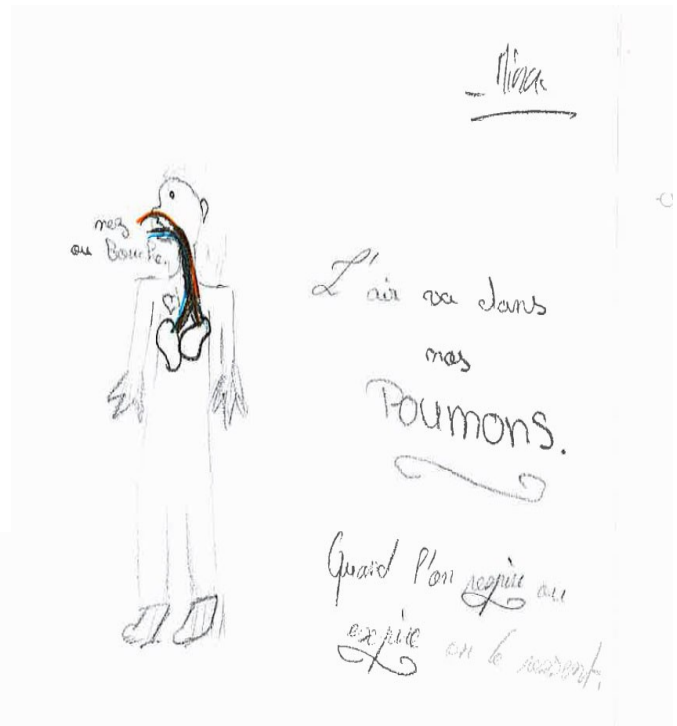 nez
ou Bouche
L'air va dans
nos
Poumons.
Quand l'on respire ou
expire on le ressent.